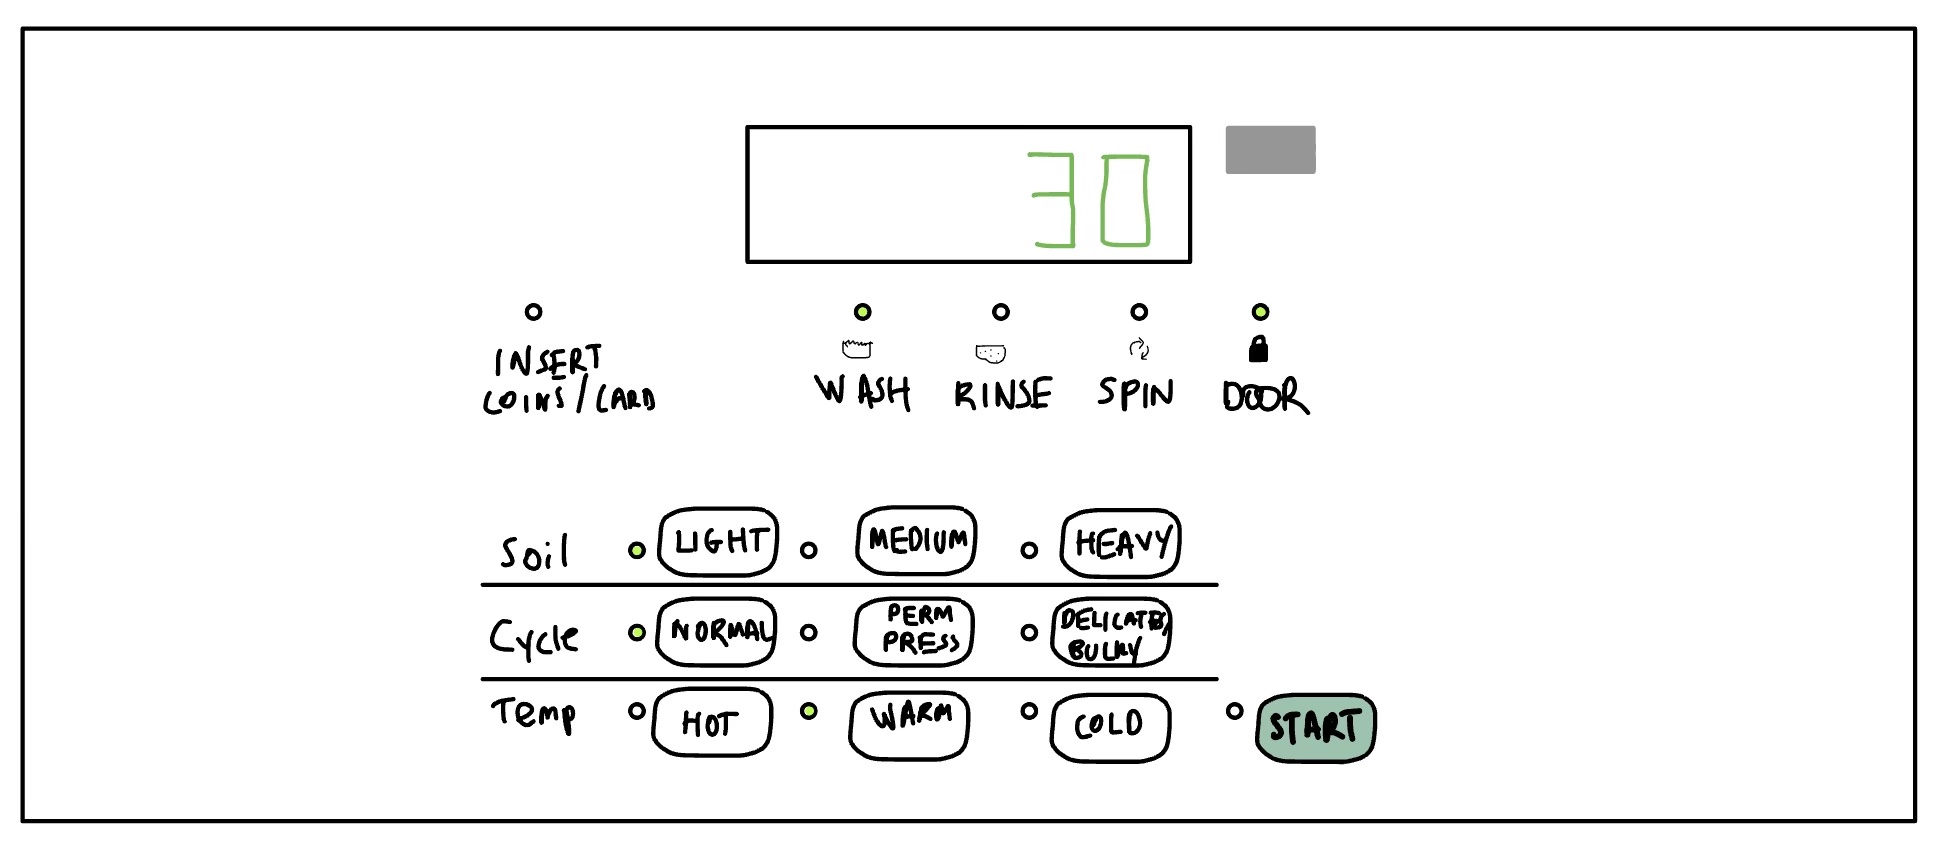 30
INSERT
COINS/CARD
WASH RINSE SPIN DOOR
Soil LIGHT MEDIUM HEAVY
Cycle NORMAL PERM
PRESS DELICATE/
BULKY
Temp HOT WARM COLD START